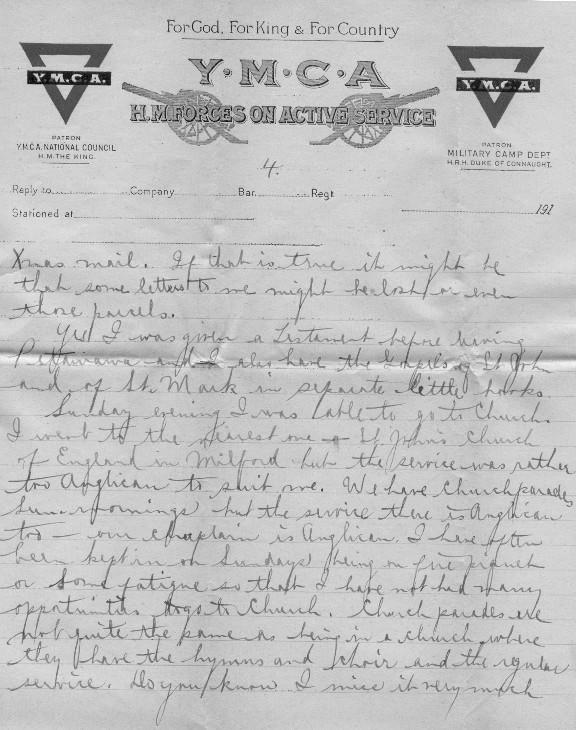 For God, For King & For Country
Y·M·C·A
H.M. FORCES ON ACTIVE SERVICE
Y.M.C.A.
PATRON
Y.M.C.A. NATIONAL COUNCIL
H.M. THE KING.
Y.M.C.A.
PATRON
MILITARY CAMP DEPT
H.R.H. DUKE OF CONNAUGHT.
4.
Reply to Company Bar. Regt
Stationed at 191
Xmas mail. If that is true it might be
that some letters to me might be lost or even
those parcels.
Yes I was given a Testament before leaving
Pettawawa and I also have the Gospels of St. John
and of St. Mark in separate little books.
Sunday evening I was able to go to Church.
I went to the nearest one - St. John's Church
of England in Milford but the service was rather
too Anglican to suit me. We have Church parades
Sun. mornings but the service there is Anglican
too - our chaplain is Anglican. I have often
been kept in on Sundays being on fire piquet
or some fatigue so that I have not had many
opportunities to go to Church. Church parades are
not quite the same as being in a church where
they have the hymns and choir and the regular
service. Do you know I miss it very much